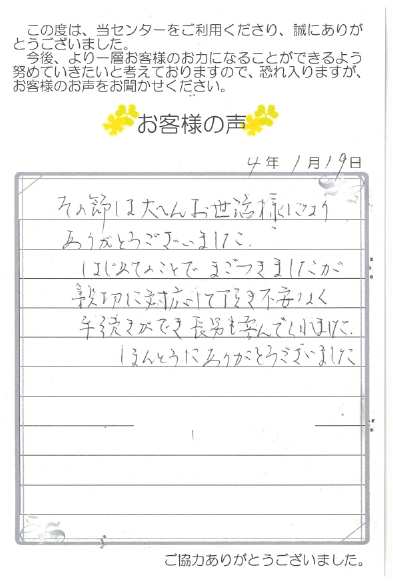 この度は、当センターをご利用くださり、誠にありが
とうございました。
今後、より一層お客様のお力になることができるよう
努めていきたいと考えておりますので、恐れ入りますが、
お客様のお声をお聞かせください。
お客様の声
4年 1月19日
その節は大へんお世話様になり
ありがとうございました.
はじめてのことでまごつきましたが
親切に対応して下さり不安なく
手続きができ長男も喜んでくれました.
ほんとうにありがとうございました
ご協力ありがとうございました。